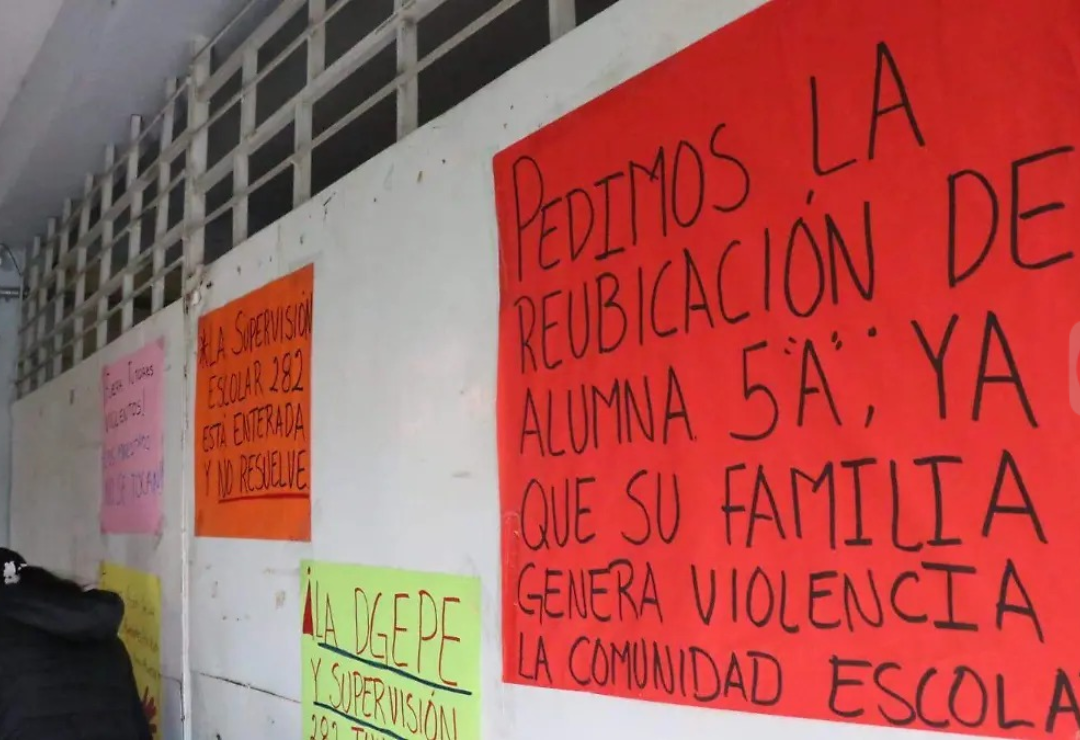 PEDIMOS LA
REUBICACIÓN DE
ALUMNA 5"A", YA
QUE SU FAMILIA
GENERA VIOLENCIA A
LA COMUNIDAD ESCOLA
*LA SUPERVISIÓN
ESCOLAR 282
ESTÁ ENTERADA
Y NO RESUELVE
¡FUERA TUTORES
VIOLENTOS!
TOCAN!
¡LA DGEPE
Y SUPERVISIÓN
282